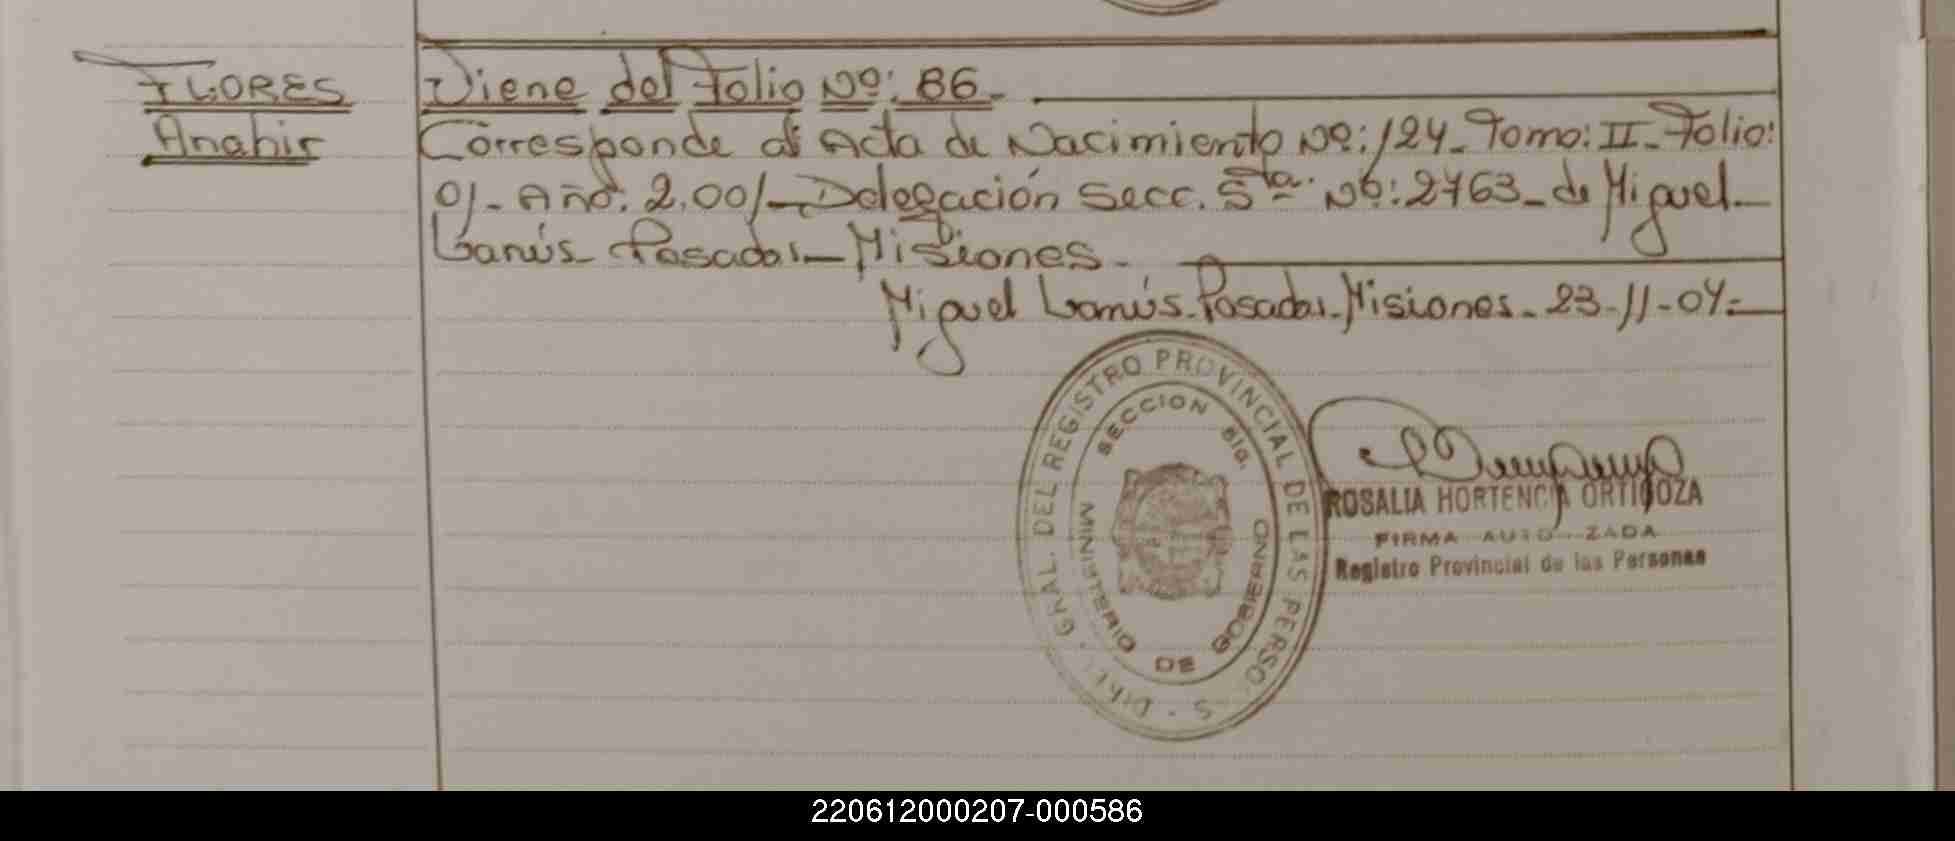 FLORES
Anahir
Viene del Folio Nº: 86.
Corresponde al Acta de Nacimiento Nº: 124_ Tomo: II_ Folio:
01_ Año: 2.001_ Delegación Secc. 5ta. Nº: 2763_ de Miguel_
Lanús_ Posadas_ Misiones_
Miguel Lanús_ Posadas_ Misiones_ 23-11-04=
GRAL. DEL REGISTRO PROVINCIAL DE LAS PERSO S
SECCION
MINISTERIO DE GOBIERNO
ROSALIA HORTENCIA ORTIGOZA
FIRMA AUTO ZADA
Registro Provincial de las Personas
220612000207-000586